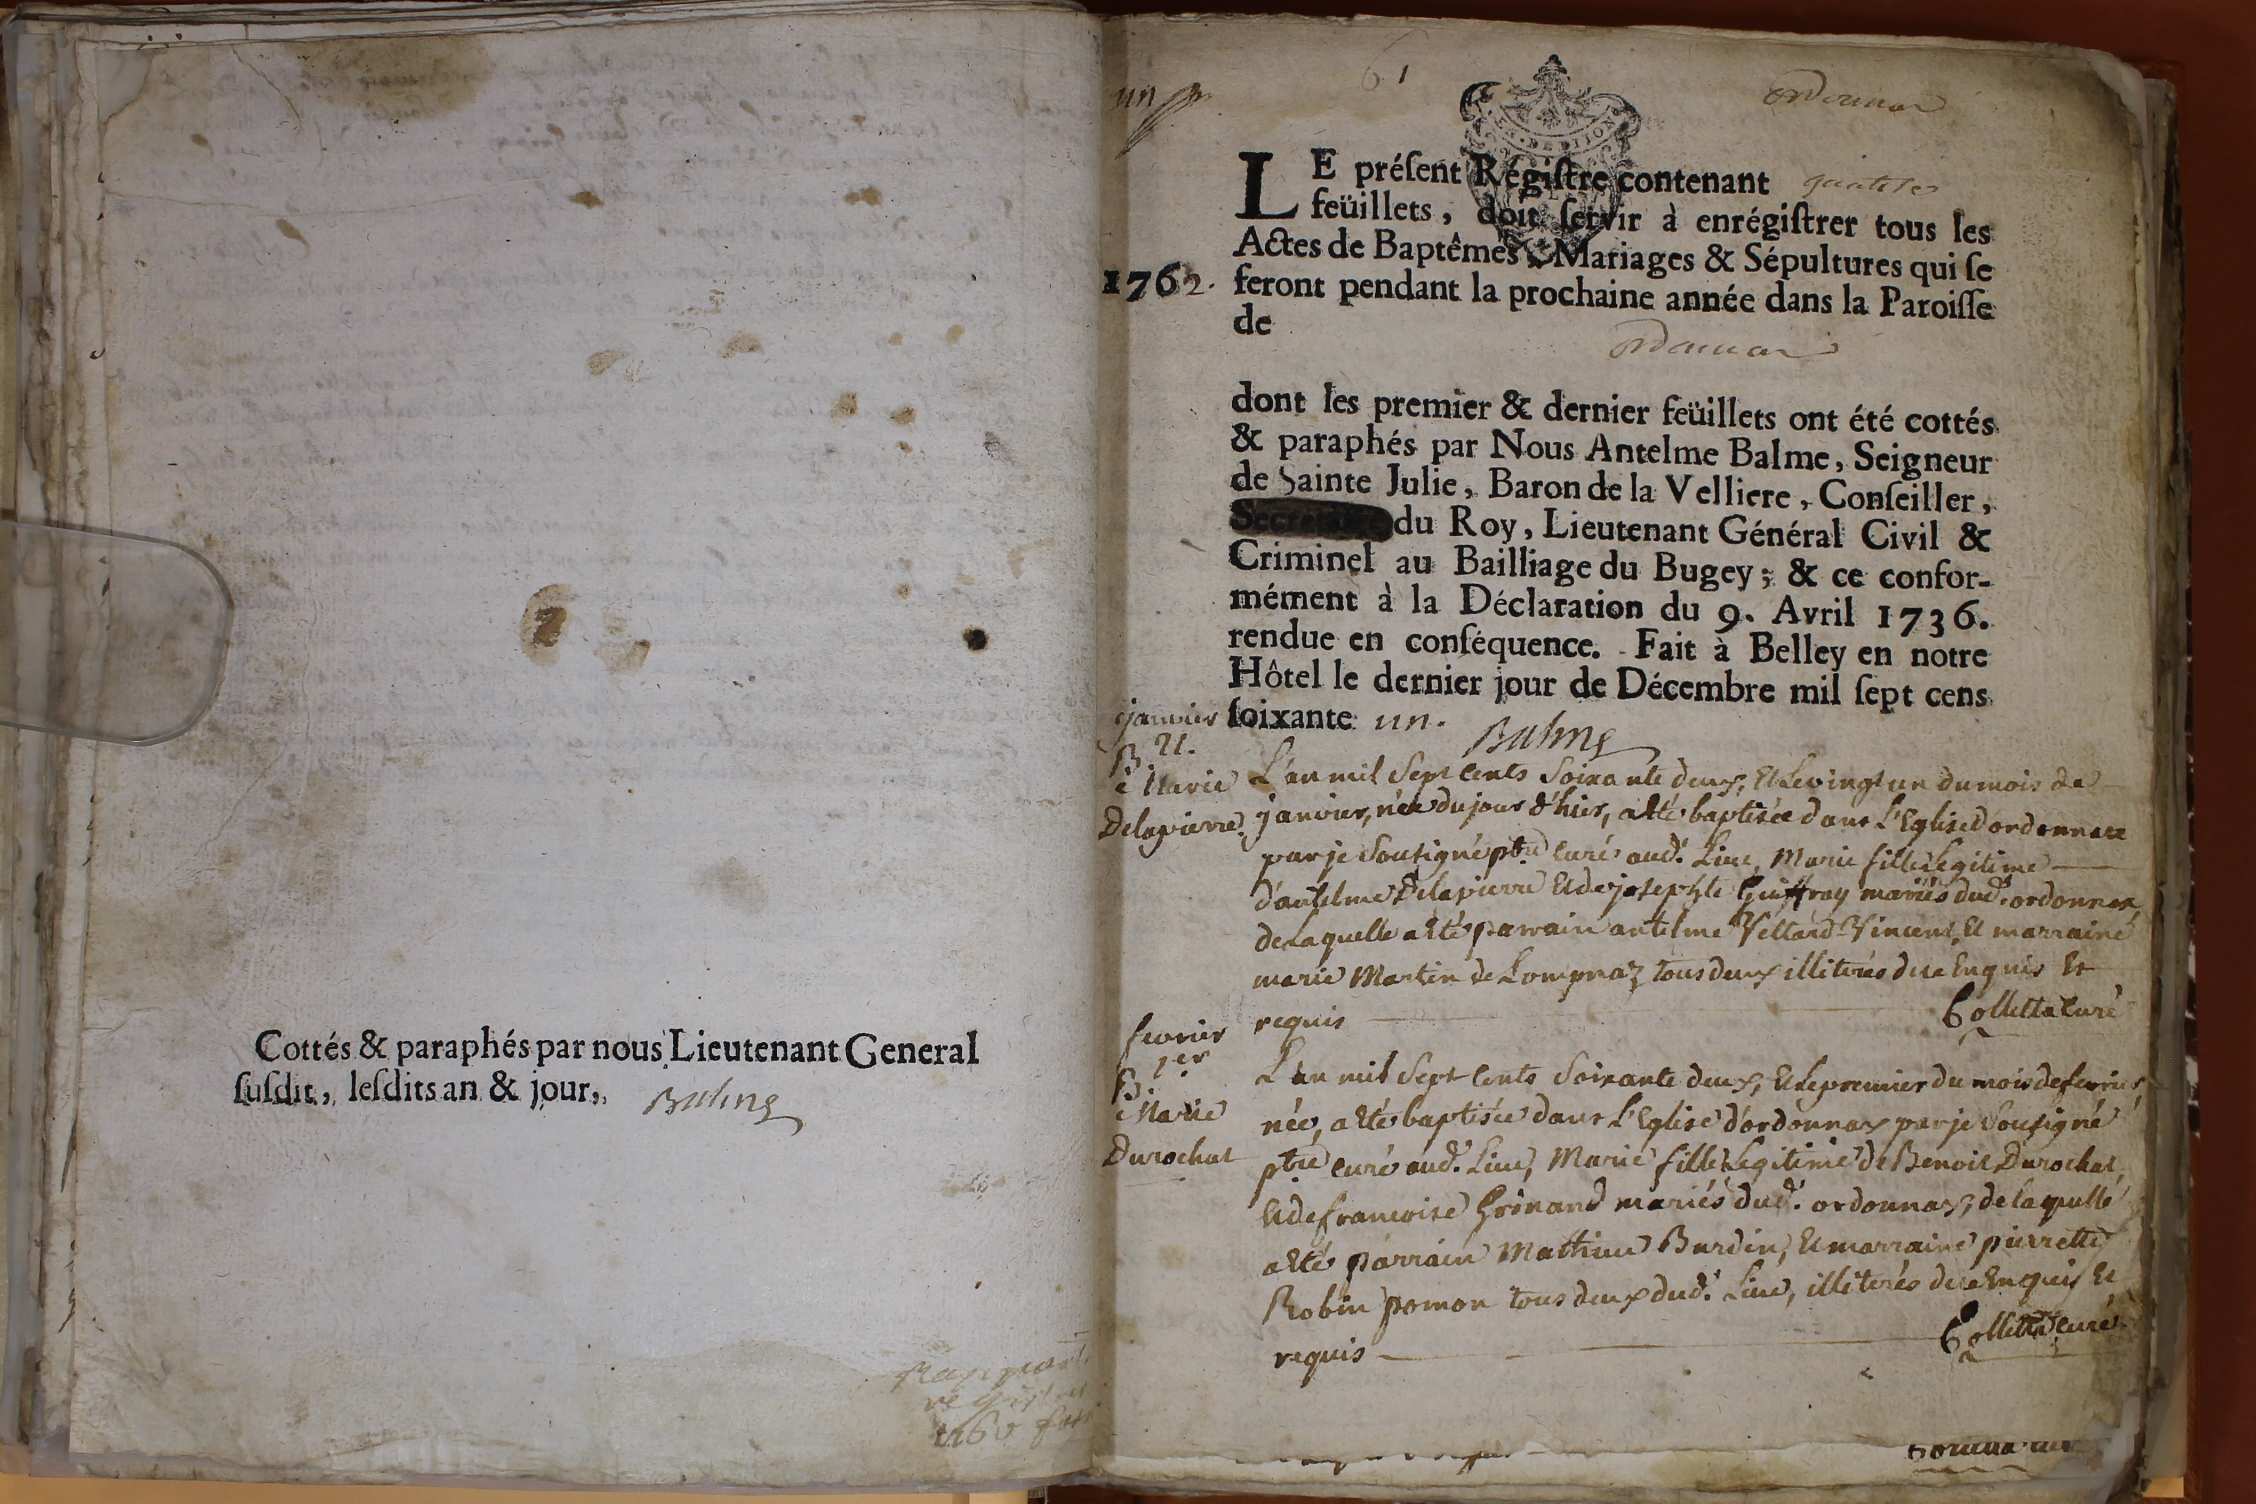 Cottés & paraphés par nous Lieutenant General
ſuſdit, leſdits an & jour,. Balme
un
61
GEN. DE DIJON
LE préſent Régiſtre contenant quatre
feüillets, doit ſervir à enrégiſtrer tous les
Actes de Baptêmes, Mariages & Sépultures qui ſe
1762. feront pendant la prochaine année dans la Paroiſſe
de
ordonnaz
dont les premier & dernier feüillets ont été cottés
& paraphés par Nous Antelme Balme, Seigneur
de Sainte Julie, Baron de la Velliere, Conſeiller,
du Roy, Lieutenant Général Civil &
Criminel au Bailliage du Bugey; & ce confor-
mément à la Déclaration du 9. Avril 1736.
rendue en conſéquence. Fait à Belley en notre
Hôtel le dernier jour de Décembre mil ſept cens
ſoixante un. Balme
janvier
B. 21.
Marie
Delapierre.
L'an mil Sept Cents Soixante deux, Et Le vingt un du mois de
janvier, née du jour d'hier, a été baptisée dans L'Eglise d'ordonnaz
par je Sousigné ptre curé aud. Lieu, Marie fille Legitime
d'antelme Delapierre Et de josephte Guiffray mariés dud. ordonnaz,
de Laquelle a été parrain antelme Vettard-Vincent, Et marraine
marie Martin de Lompnaz tous deux illiterés de ce Enquis Et
requis Colletta curé
fevrier
1er
B.
Marie
Durochat
L'an mil Sept Cents Soixante deux, Et Le premier du mois de fevrier,
née, a été baptisée dans L'Eglise d'ordonnaz par je Sousigné
ptre curé aud. Lieu, Marie fille Legitime de Benoit Durochat
Et de francoise Grinand mariés dud. ordonnaz, de laquelle
a été parrain Mathieu Burdin, Et marraine pierrette
Robin pomon tous deux dud. Lieu, illiterés de ce Enquis Et
requis Colletta curé